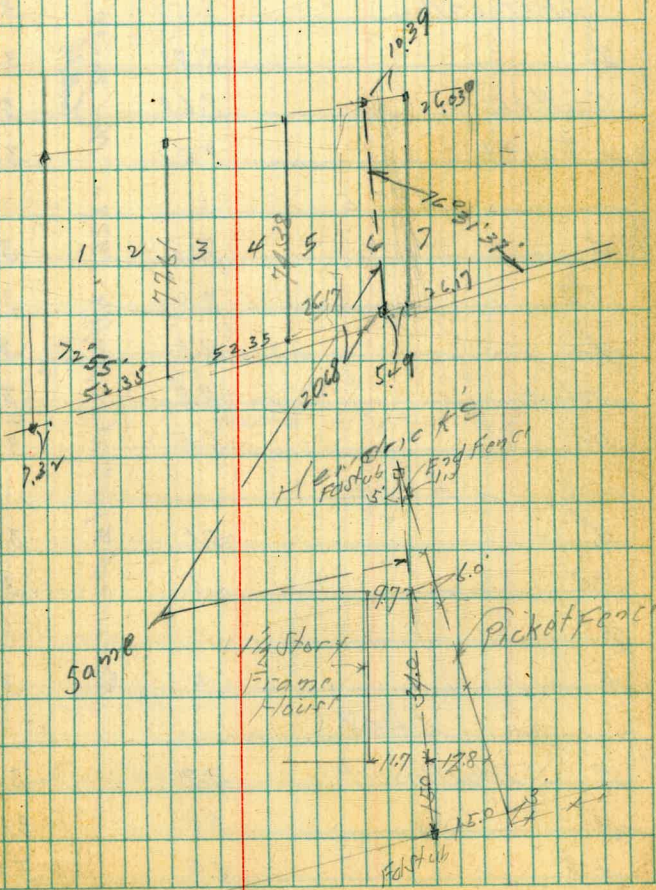 10.39
26.03
76° 31' 37"
1 2 3 4 5 6 7
77.61
26.17
26.17
52.35
72° 55'
52.35
20.68
5.49
7.32
Hendrick's
Fd Stub
End Fence
1.3
.5
6.0
9.7
Same
1½ Story
Frame
House
Picket Fence
34.0
11.7
12.8
15.0
15.0
.3
Fd Stub